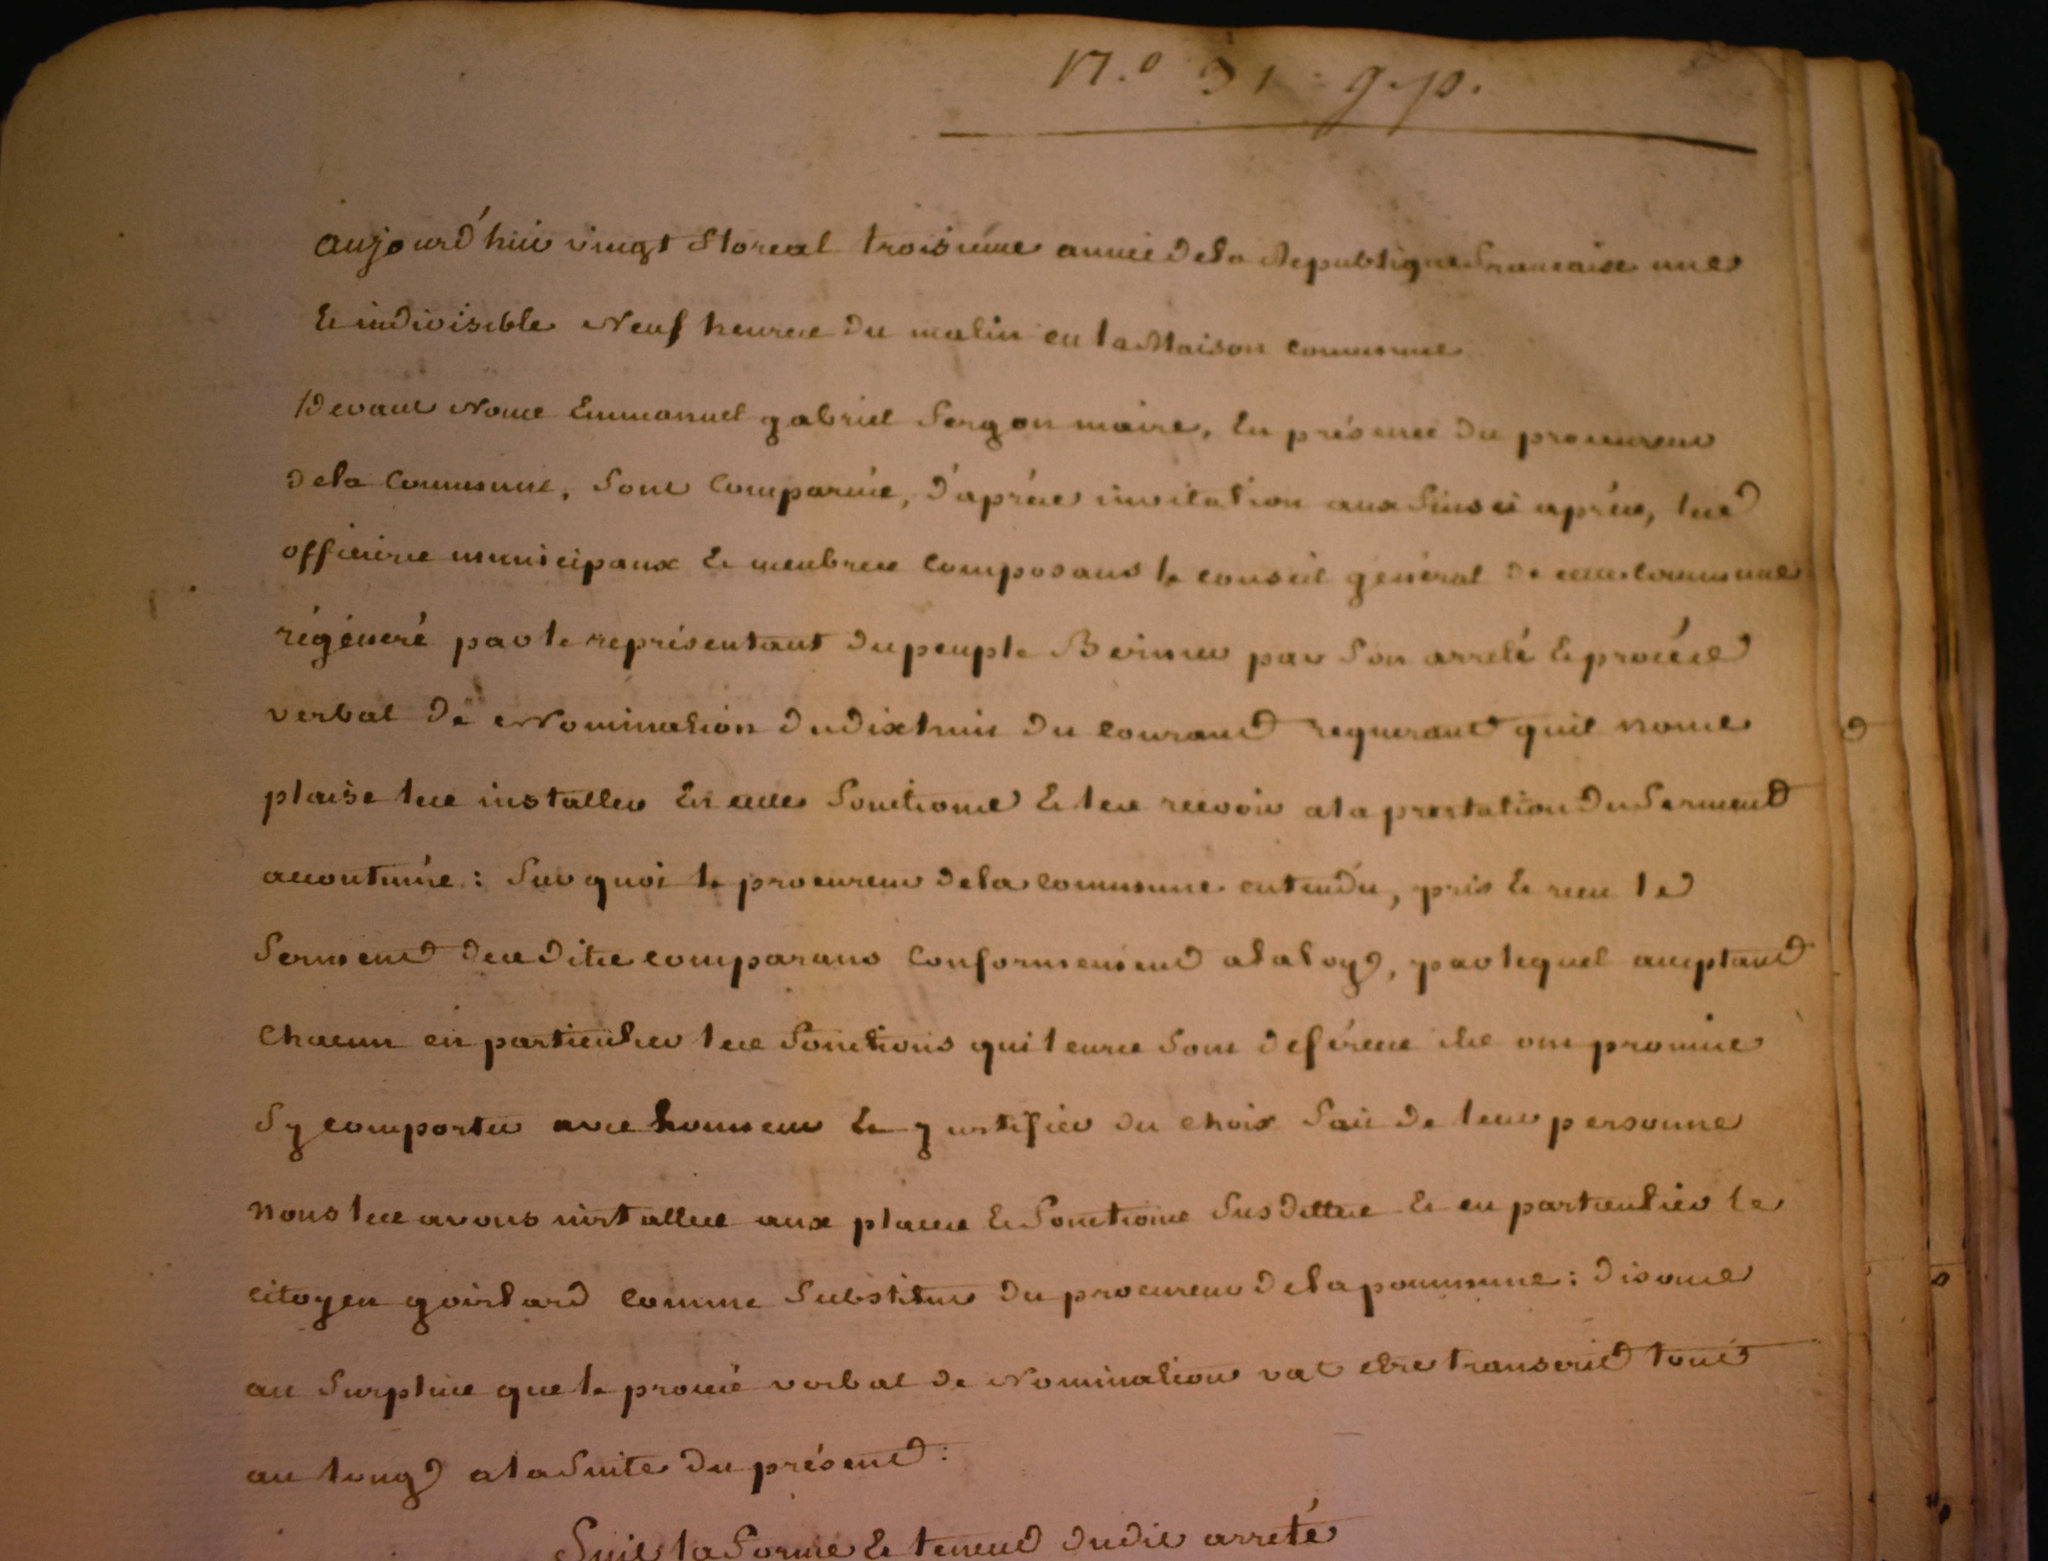 N.º 91 g.p.
aujourd'hui vingt floreal troisiéme année dela Republique francaise une
Et indivisible Neuf heures du matin en la Maison commune
Devant Nous Emmanuel gabriel sergon maire, En présence du procureur
dela Commune, sont Comparus, d'aprés invitation aux fins ci aprés, les
officiers municipaux Et membres Composans le conseil général de cette commune
régéneré par le représentant du peuple par son arreté Et procés
verbal de Nomination du dixhuit du courant requerant quil nous
plaise les installer En cettes fonctions Et les recevoir ala prestation du serment
accoutumée : sur quoi le procureur dela commune entendu, pris Et recu le
serment des dits comparans Conformement ala loy, par lequel acceptant
Chacun en particulier les fonctions qui leurs sont deférées ils ont promis
sy comporter avec honneur Et justifier du choix fait de leur personne
nous les avons installés aux places Et fonctions susdittes Et en particulier le
citoyen goirlard comme substitut du procureur dela poummune : disons
au surplus que le procés verbal de Nomination vat etre transcrit tout
au long ala suite du présent :
suit la forme Et teneur dudit arreté